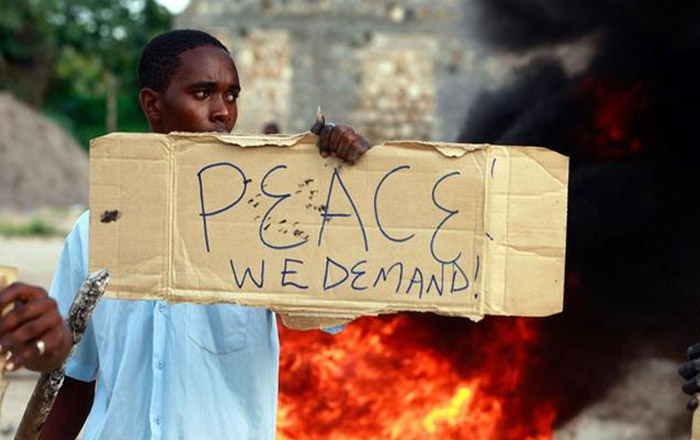 PEACE!
WE DEMAND!